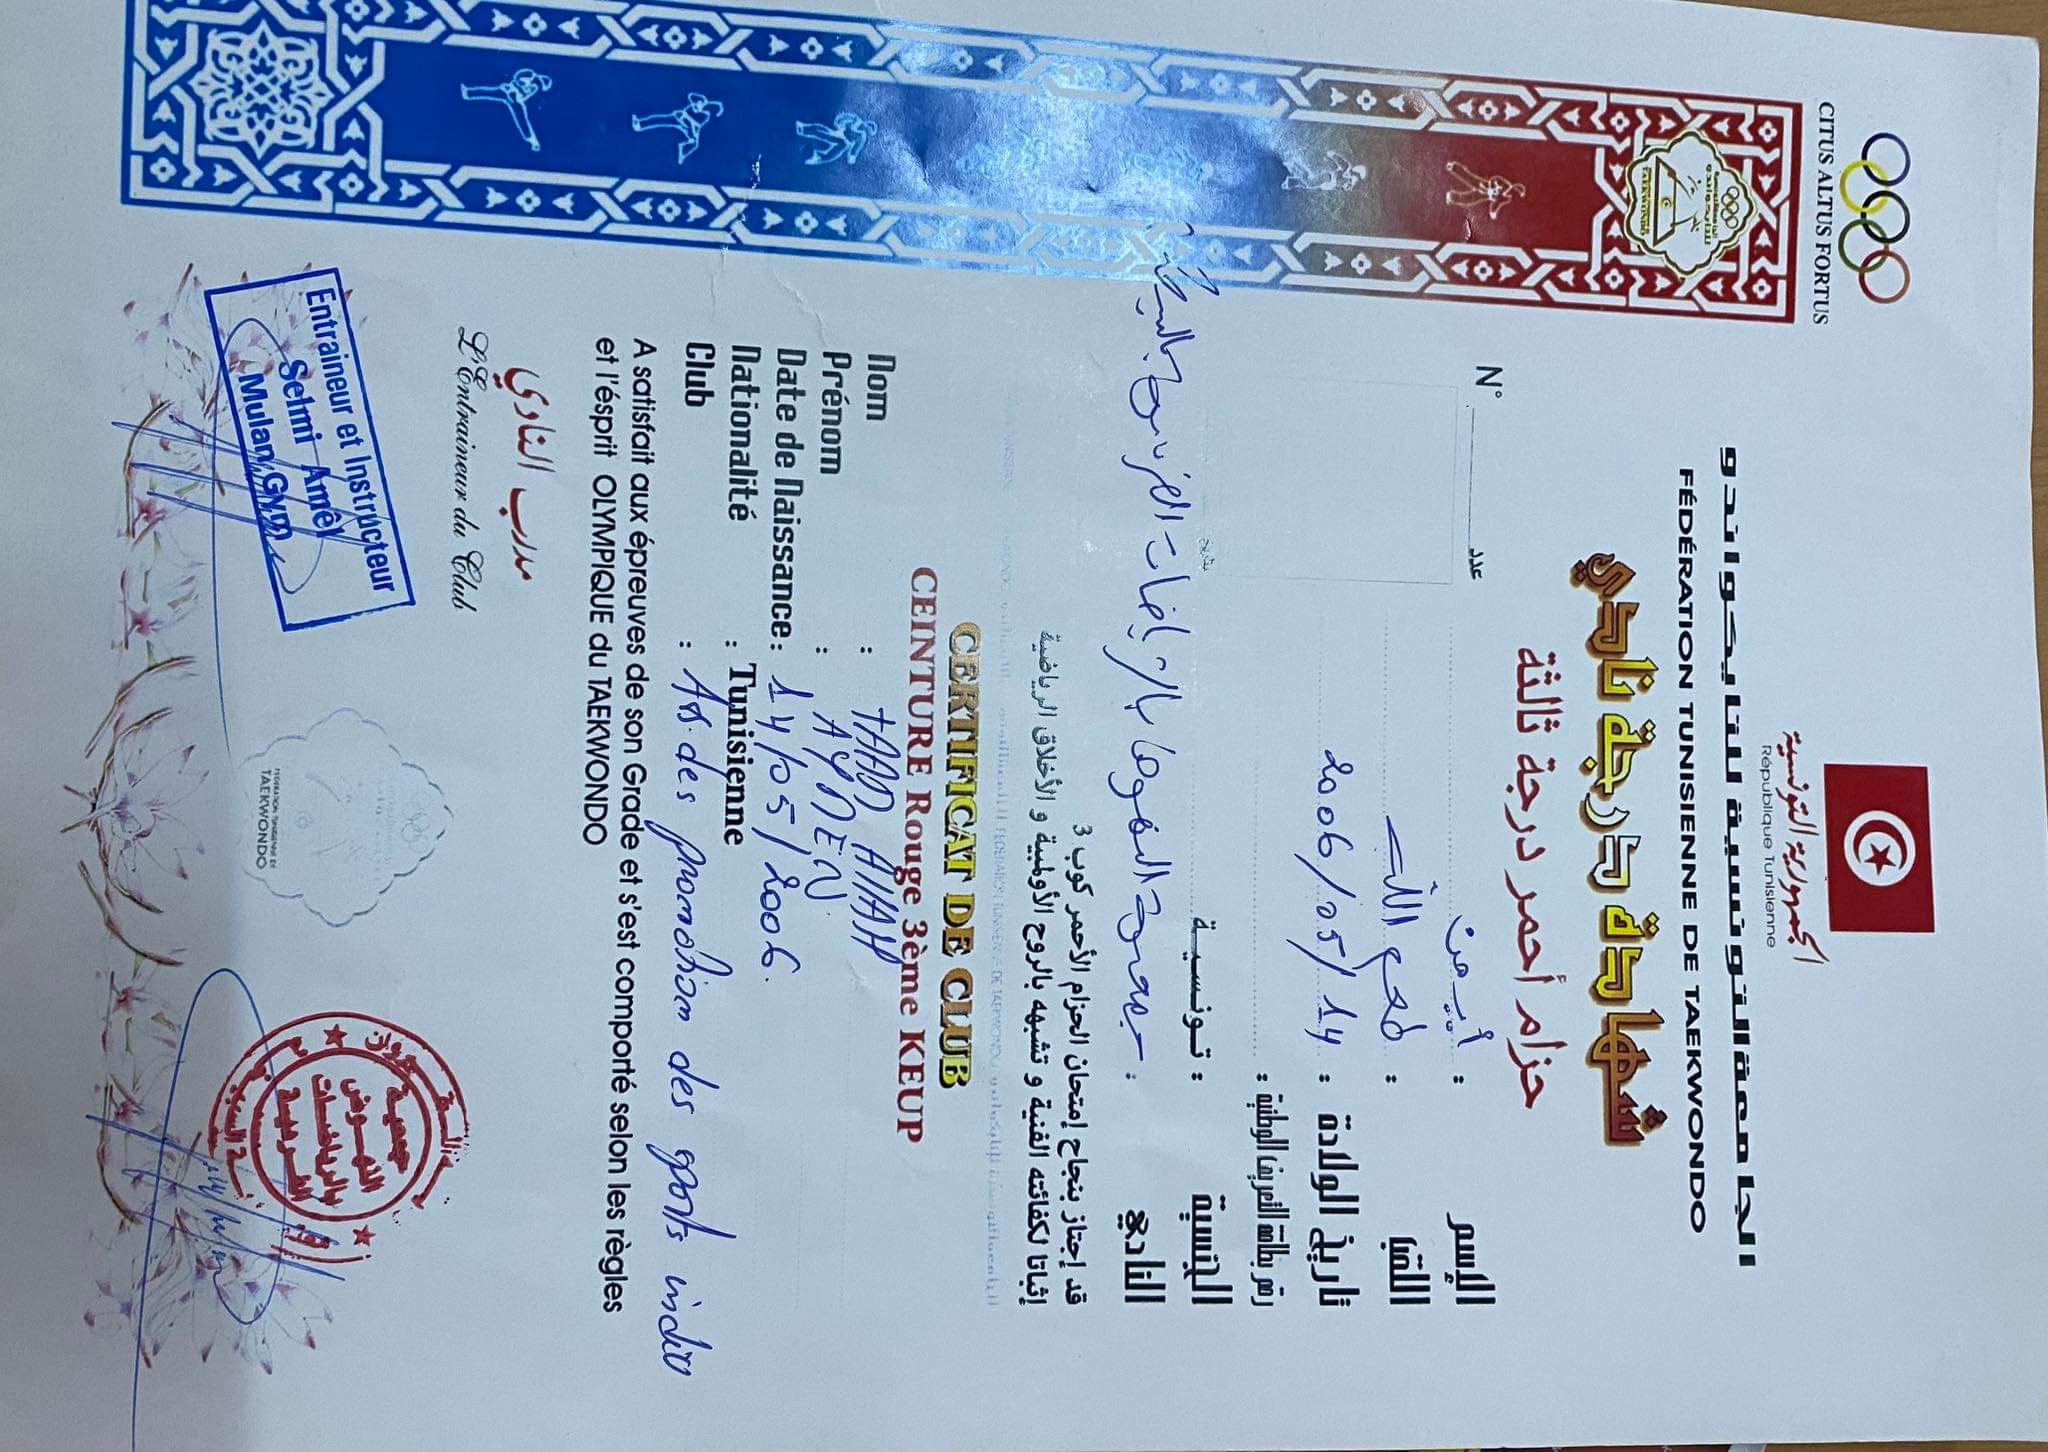 CITUS ALTUS FORTUS
الجمهورية التونسية
République Tunisienne
الجامعة التونسية للتايكواندو
FÉDÉRATION TUNISIENNE DE TAEKWONDO
شهادة درجة نادي
حزام أحمر درجة ثالثة
N° عدد
الإسم : أيمن
اللقب :
تاريخ الولادة : 2006/05/14
رقم بطاقة التعريف الوطنية :
الجنسية : تونسية
النادي : جمعية النهوض بالرياضات الفردية
قد إجتاز بنجاح إمتحان الحزام الأحمر كوب 3
إثباتا لكفائته الفنية و تشبهه بالروح الأولمبية و الأخلاق الرياضية
CERTIFICAT DE CLUB
CEINTURE Rouge 3ème KEUP
Nom :
Prénom : AYMEN
Date de Naissance : 14/05/2006
Nationalité : Tunisienne
Club : As. des promotion des sports indiv
A satisfait aux épreuves de son Grade et s'est comporté selon les règles
et l'ésprit OLYMPIQUE du TAEKWONDO
مدرب النادي
L'Entraineur du Club
Entraineur et Instructeur
Selmi Amel
Mulan GYM
FEDERATION TUNISIENNE DE
TAEKWONDO
جمعية
النهوض
بالرياضات
الفردية